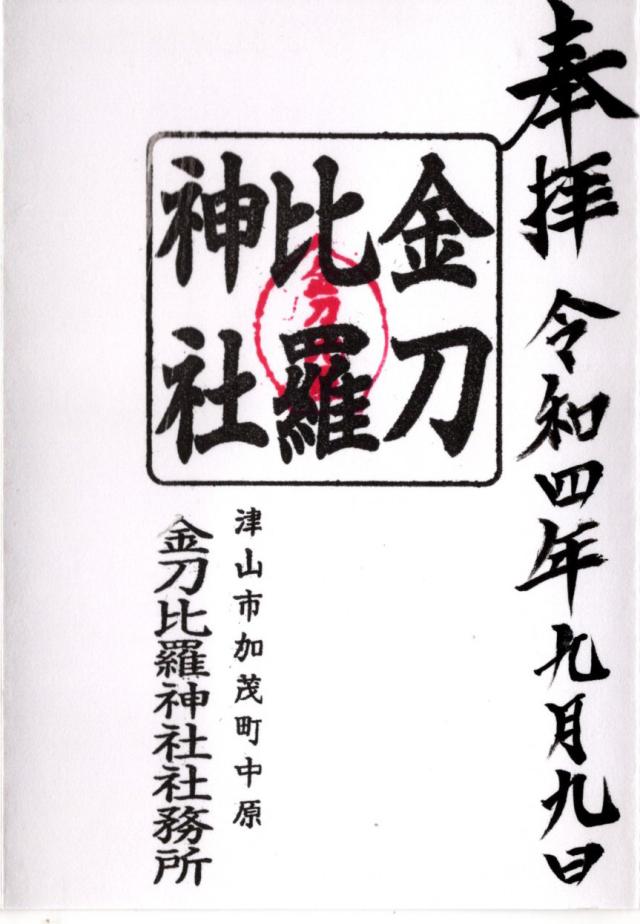 奉拝 令和四年九月九日
金刀
比羅
神社
金刀
津山市加茂町中原
金刀比羅神社社務所